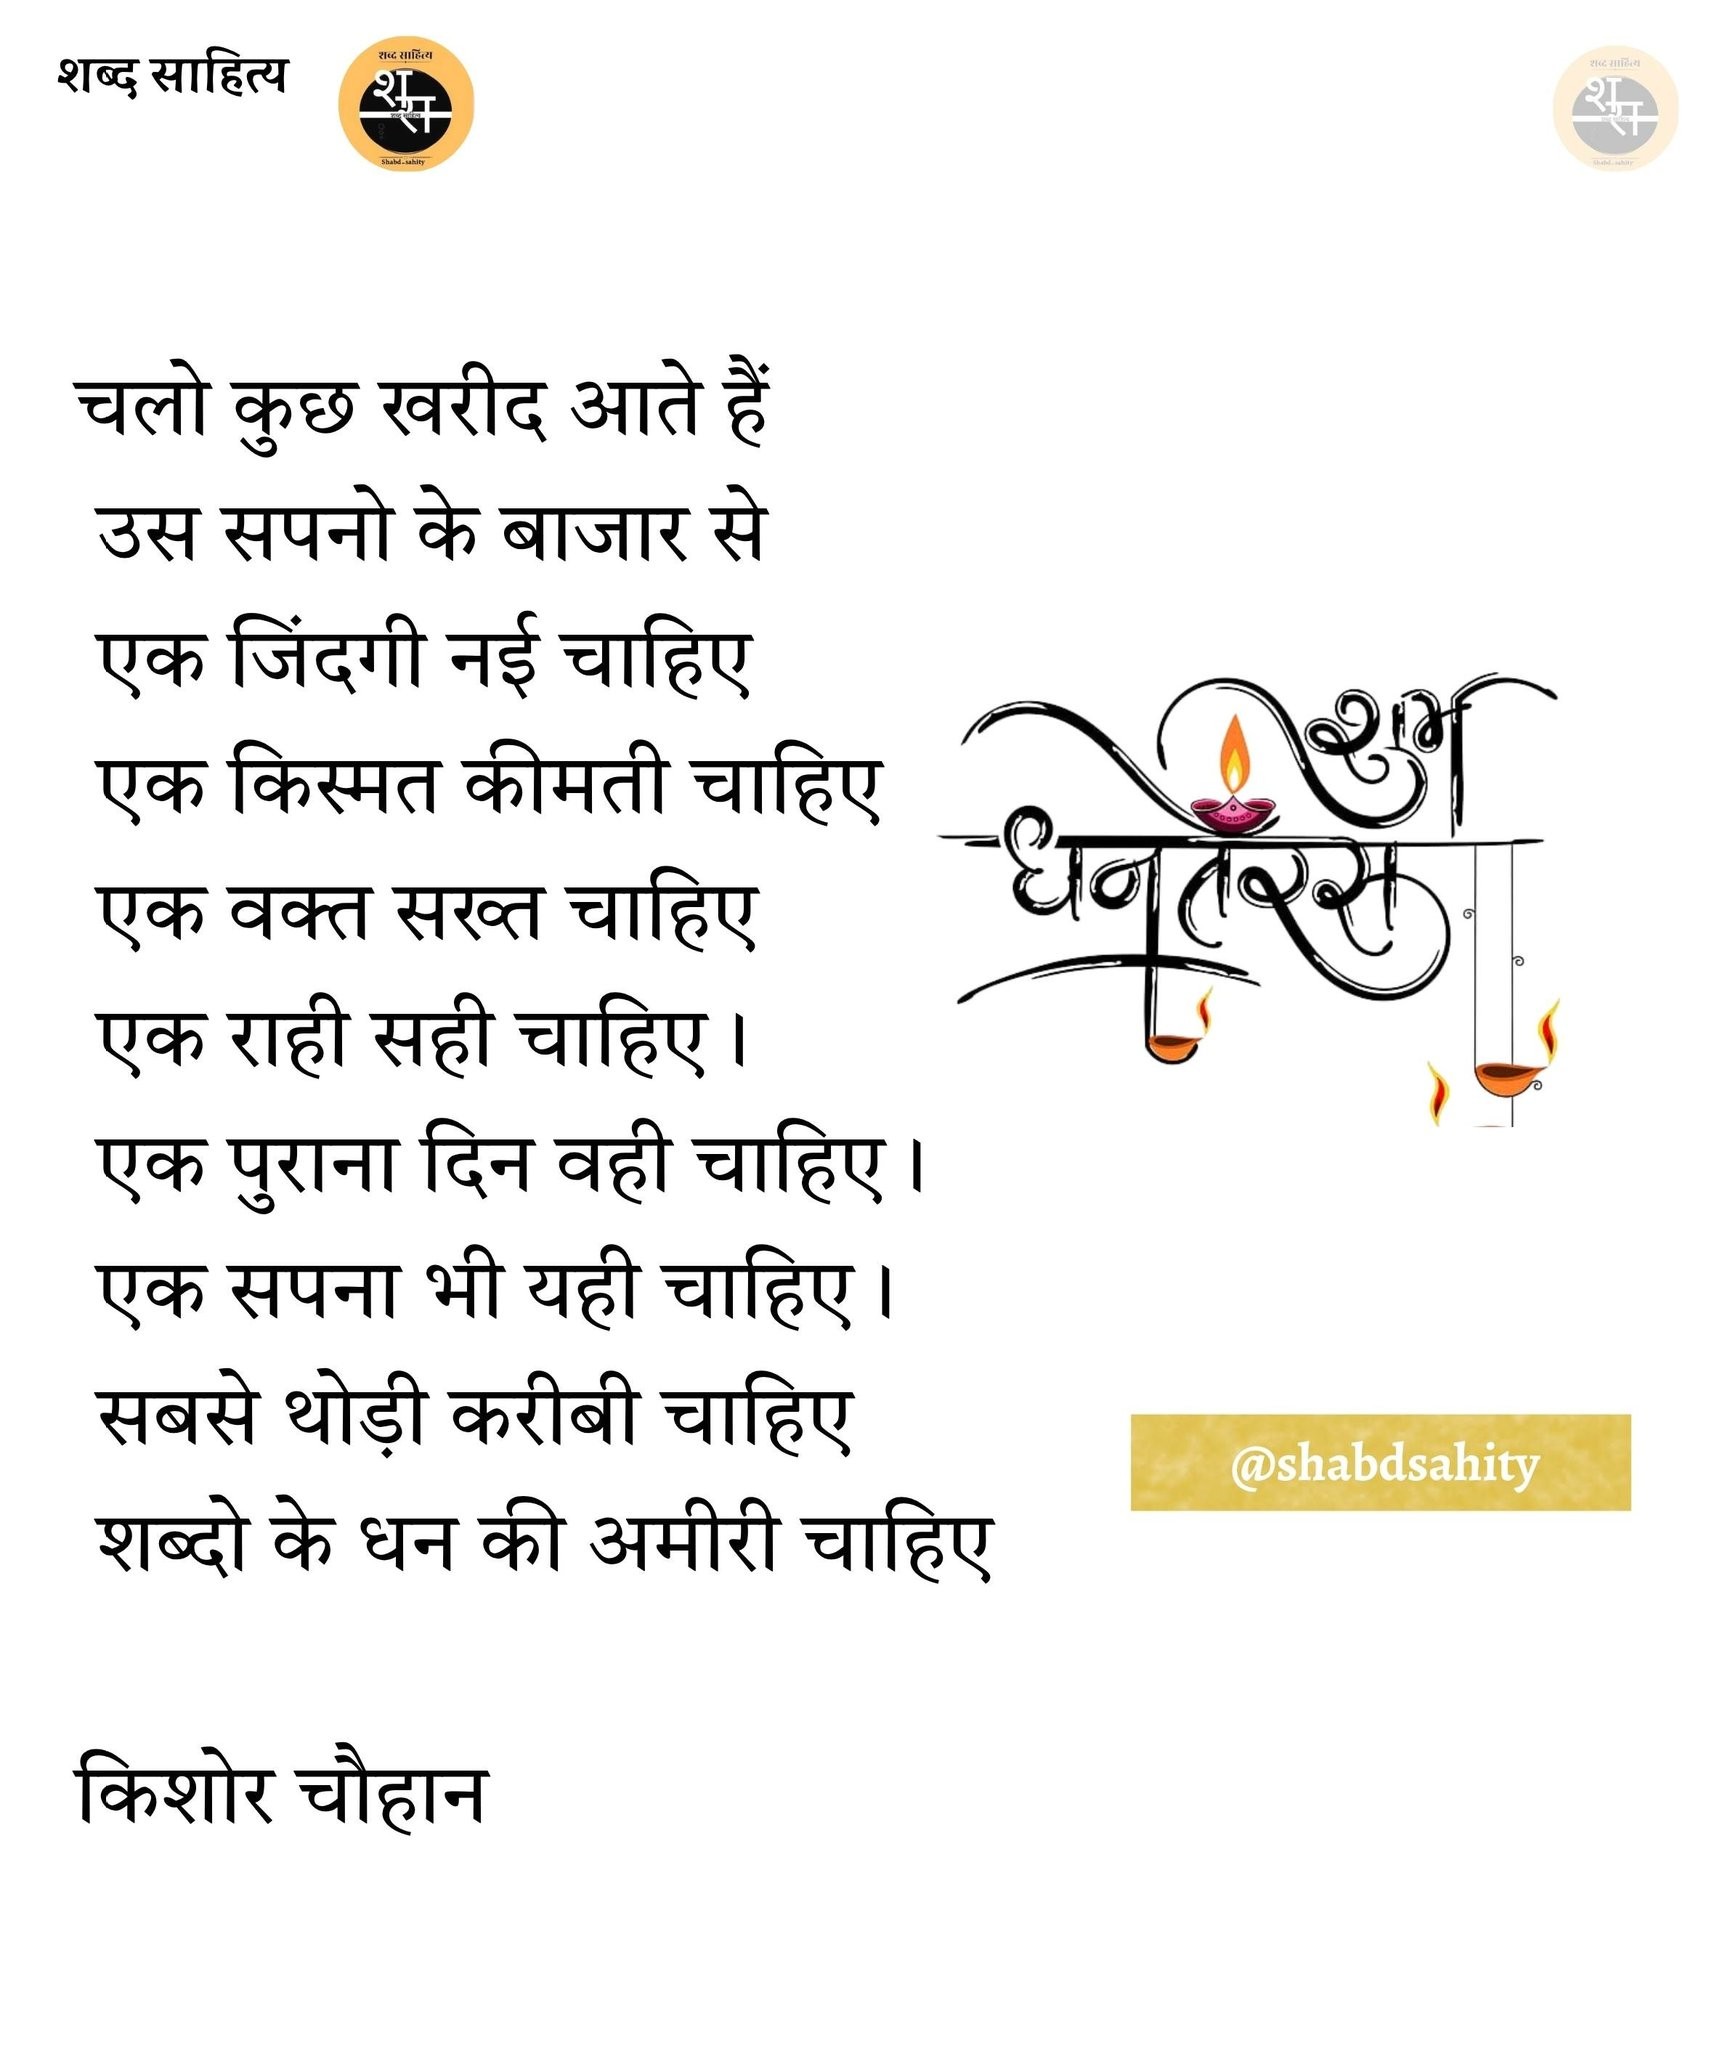 शब्द साहित्य
शब्द साहित्य
श
स
शब्द साहित्य
Shabd_sahity
शब्द साहित्य
श
स
शब्द साहित्य
Shabd_sahity
चलो कुछ खरीद आते हैं
उस सपनो के बाजार से
एक जिंदगी नई चाहिए
एक किस्मत कीमती चाहिए
एक वक्त सख्त चाहिए
एक राही सही चाहिए।
एक पुराना दिन वही चाहिए।
एक सपना भी यही चाहिए।
सबसे थोड़ी करीबी चाहिए
शब्दो के धन की अमीरी चाहिए
शुभ
धनतेरस
@shabdsahity
किशोर चौहान